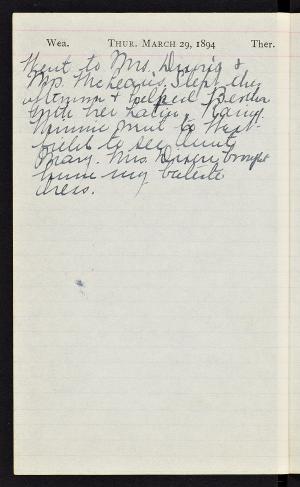 Wea. THUR. MARCH 29, 1894 Ther.
Went to Mrs. &
Mrs. McLean's. Slept the
afternoon & helped Bertha
with her Latin. Rainy.
Minnie went to West-
field to see Aunt
Mary. Mrs. brought
home my batiste
dress.